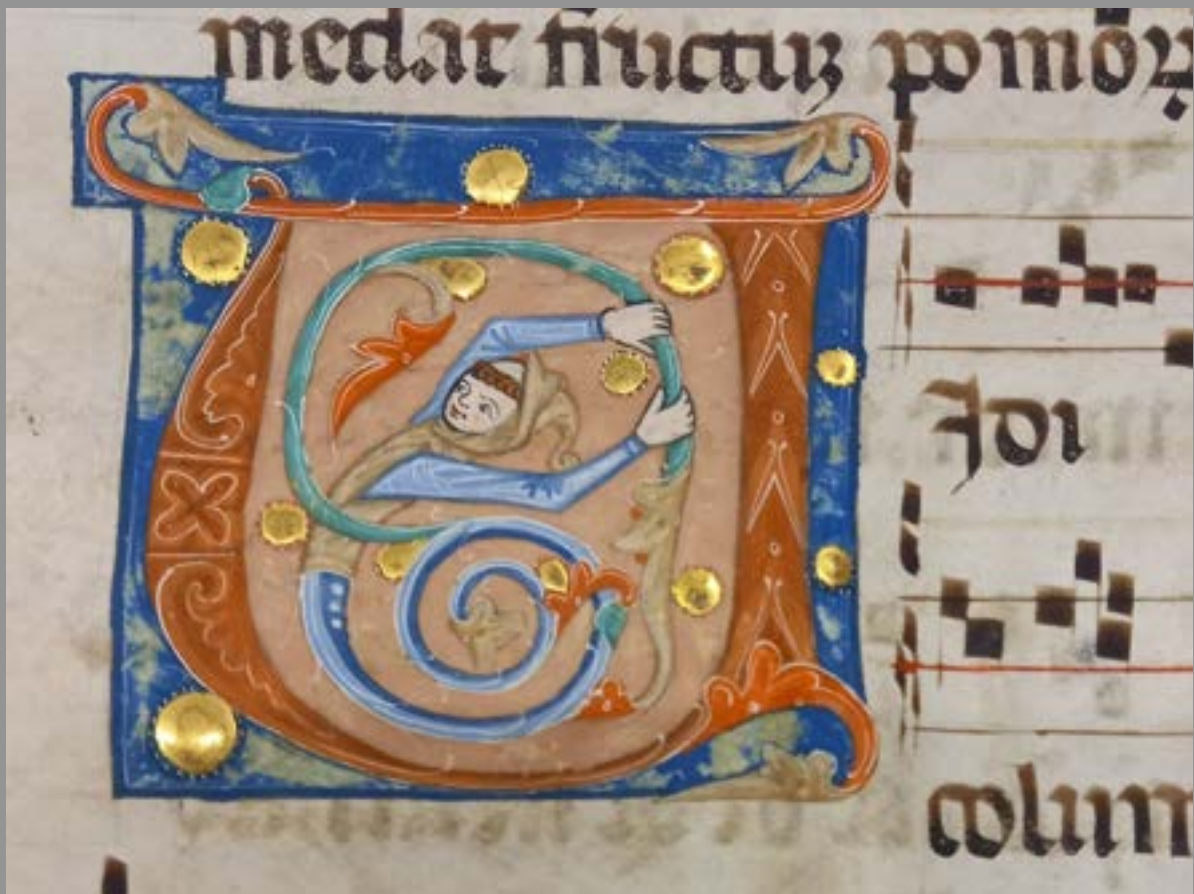 medat fructuꝫ pomōꝝ
VIdi
colum